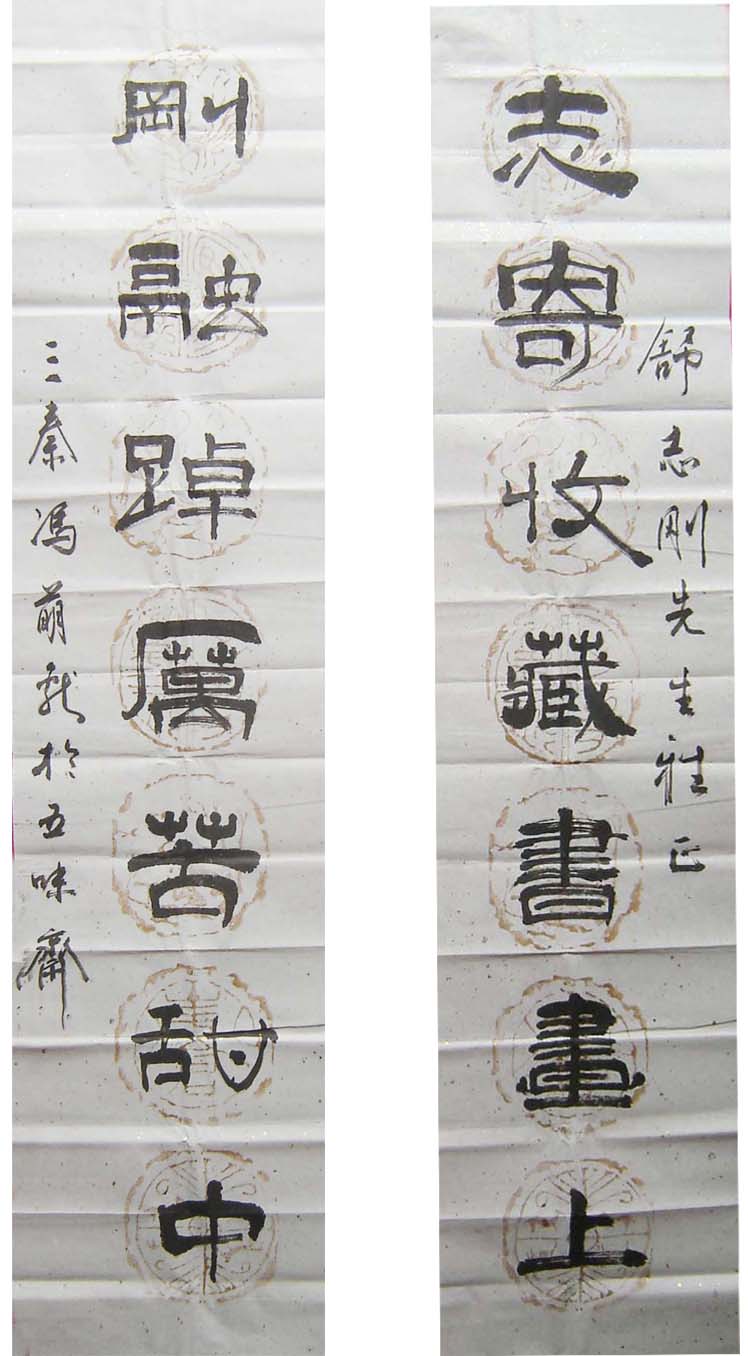 舒志刚先生雅正
志寄收藏書畫上
剛融踔厲苦甜中
三秦冯萌於五味齋